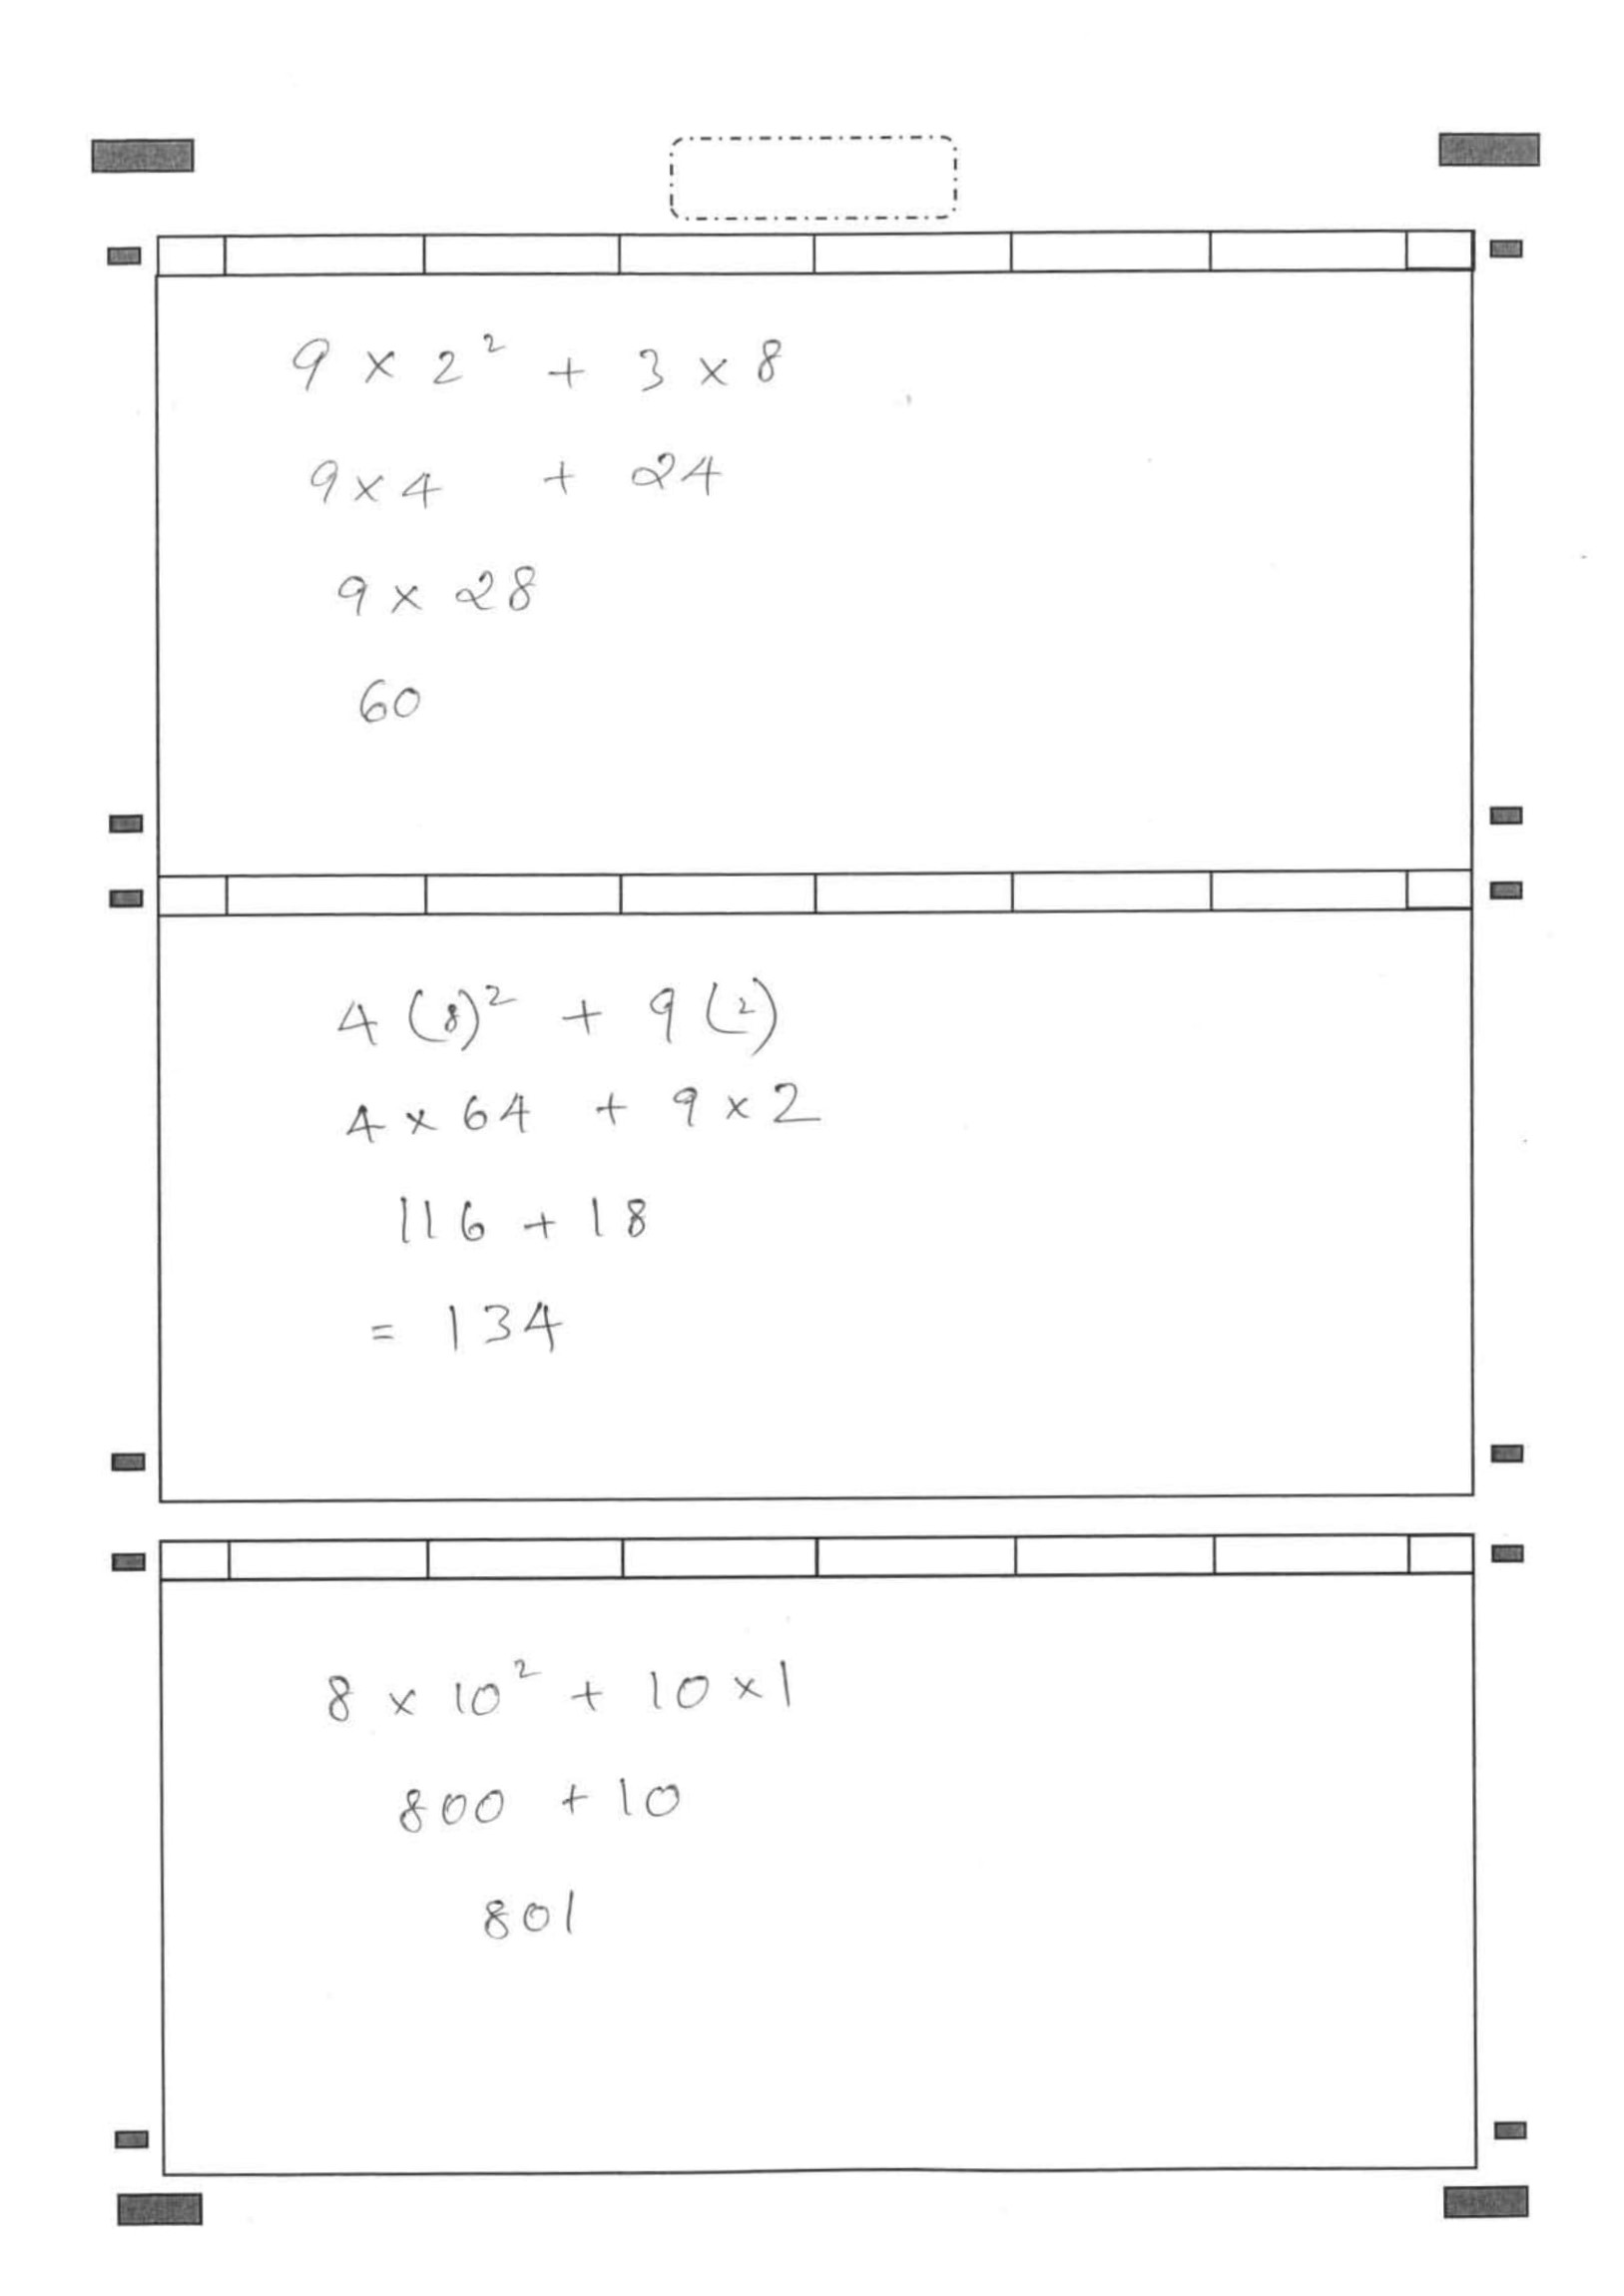 9 × 2² + 3 × 8
9 × 4 + 24
9 × 28
60
4 (8)² + 9 (2)
4 × 64 + 9 × 2
116 + 18
= 134
8 × 10² + 10 × 1
800 + 10
801